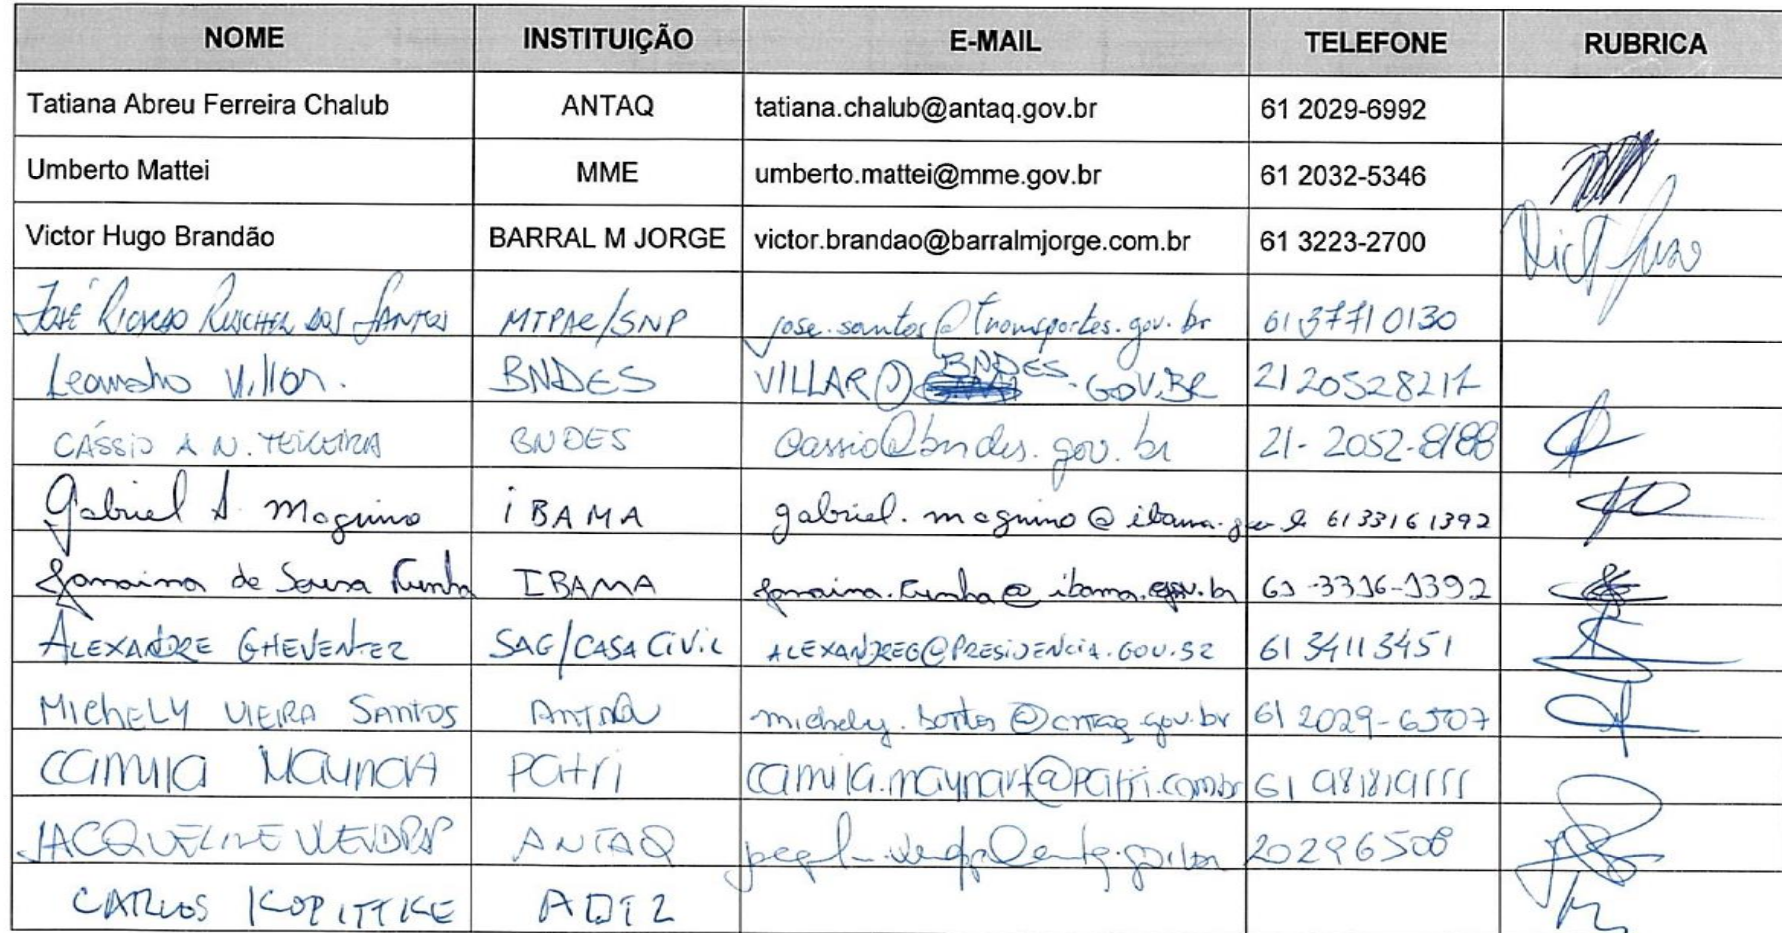 NOME INSTITUIÇÃO E-MAIL TELEFONE RUBRICA
Tatiana Abreu Ferreira Chalub ANTAQ tatiana.chalub@antaq.gov.br 61 2029-6992
Umberto Mattei MME umberto.mattei@mme.gov.br 61 2032-5346
Victor Hugo Brandão BARRAL M JORGE victor.brandao@barralmjorge.com.br 61 3223-2700
JOSÉ RICARDO RUSCHEL DOS SANTOS MTPAC/SNP jose.santos@transportes.gov.br 61 3771 0130
Leandro Villar. BNDES VILLAR@BNDES.GOV.BR 21 20528217
CÁSSIO A N. TEIXEIRA BNDES cassio@bndes.gov.br 21-2052-8188
Gabriel A. Magnino IBAMA gabriel.magnino@ibama.gov.br 61 3316 1392
Janaina de Sousa Cunha IBAMA janaina.cunha@ibama.gov.br 61-3316-1392
ALEXANDRE GHEVENTER SAG/CASA CIVIL ALEXANDREG@PRESIDENCIA.GOV.BR 61 34113451
MICHELY VIEIRA SANTOS ANTAQ michely.santos@antaq.gov.br 61 2029-6507
Camila Maynart Patri camila.maynart@patri.com.br 61
JACQUELINE WENDPAP ANTAQ 20296508
CARLOS KOPITTKE